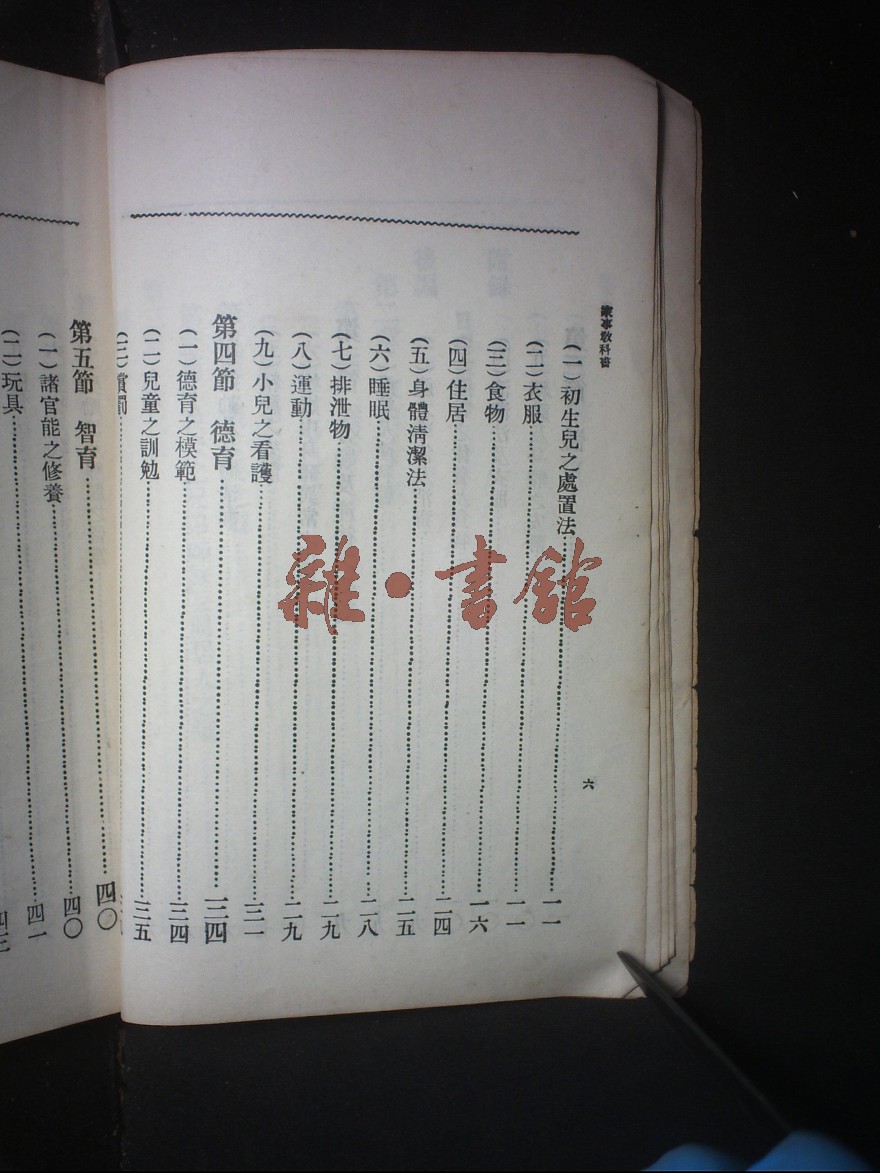 家事教科書
六
(一)初生兒之處置法……一一
(二)衣服……一一
(三)食物……一六
(四)住居……二四
(五)身體清潔法……二五
(六)睡眠……二八
(七)排泄物……二九
(八)運動……二九
(九)小兒之看護……三一
第四節 德育……三四
(一)德育之模範……三四
(二)兒童之訓勉……三五
(三)賞罰……
第五節 智育……四〇
(一)諸官能之修養……四〇
(二)玩具……四一
雜·書館